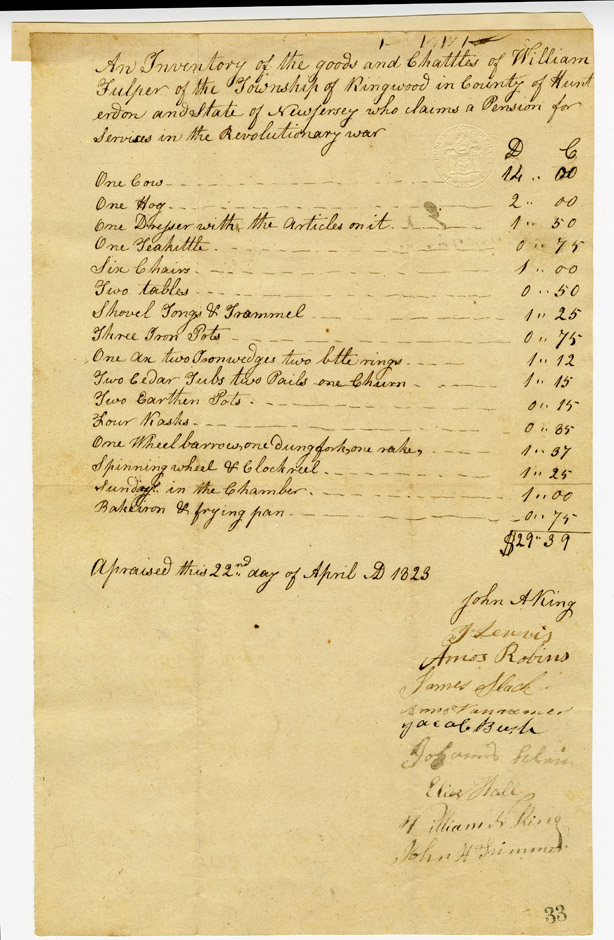 An Inventory of the goods and Chattles of William
Fulper of the Township of Kingwood in County of Hunt
erdon and State of New Jersey who claims a Pension for
Servises in the Revolutionary war
D C
One Cow 14 .. 00
One Hog 2 .. 00
One Dresser with the Articles on it. 1 .. 50
One Teakittle 0 .. 75
Six Chairs 1 .. 00
Two tables 0 .. 50
Shovel Tongs & Trammel 1 .. 25
Three Iron Pots 0 .. 75
One ax two Iron wedges two btte rings 1 .. 12
Two Cedar Tubs two Pails one Churn 1 .. 15
Two Earthen Pots 0 .. 15
Four Kasks 0 .. 85
One Wheelbarrow, one dungfork, one rake, 1 .. 37
Spinning wheel & Clockreel 1 .. 25
in the Chamber 1 .. 00
Bakeiron & frying pan 0 .. 75
$29 .. 39
Apraised this 22nd day of April AD 1823
John A King
Lewis
Amos Robins
James Slack
Jacob Bush
Hall
William King
John H Trimmer
33